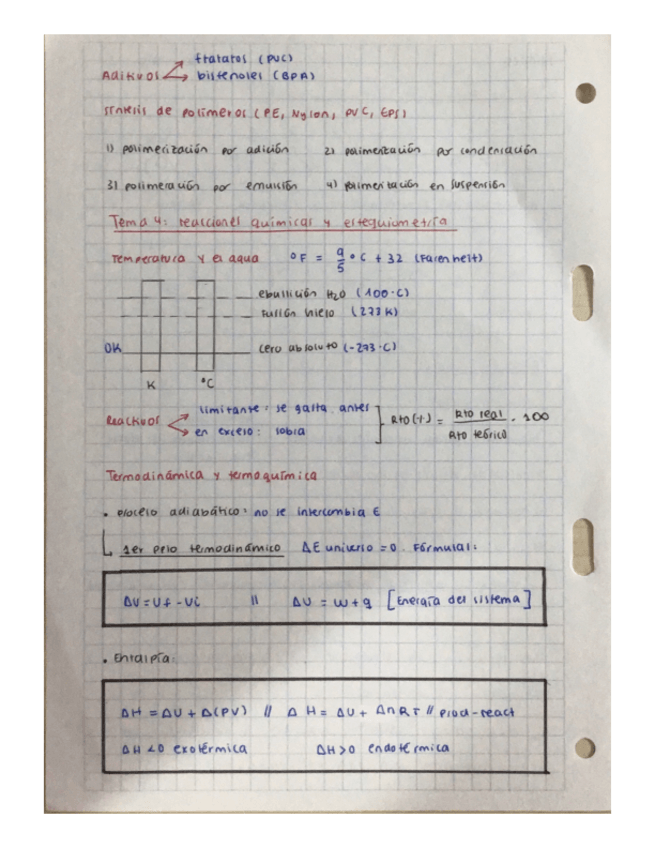 Aditivos → ftalatos (PVC)
→ bisfenoles (BPA)
síntesis de polímeros (PE, Nylon, PVC, EPS)
1) polimerización por adición 2) polimerización por condensación
3) polimeración por emulsión 4) polimerización en suspensión
Tema 4: reacciones químicas y estequiometría
Temperatura y el agua °F = 9/5 °C + 32 (Farenheit)
ebullición H2O (100°C)
Fusión hielo (273 K)
0K cero absoluto (-273°C)
K °C
Reactivos → limitante: se gasta antes
→ en exceso: sobra
Rto (%) = Rto real / Rto teórico . 100
Termodinámica y termoquímica
• proceso adiabático: no se intercambia E
↳ 1er prio termodinámico ΔE universo = 0. Fórmulas:
ΔU = Uf - Ui // ΔU = w + q [Energía del sistema]
• Entalpía:
ΔH = ΔU + Δ(PV) // ΔH = ΔU + ΔnRT // prod-react
ΔH < 0 exotérmica ΔH > 0 endotérmica